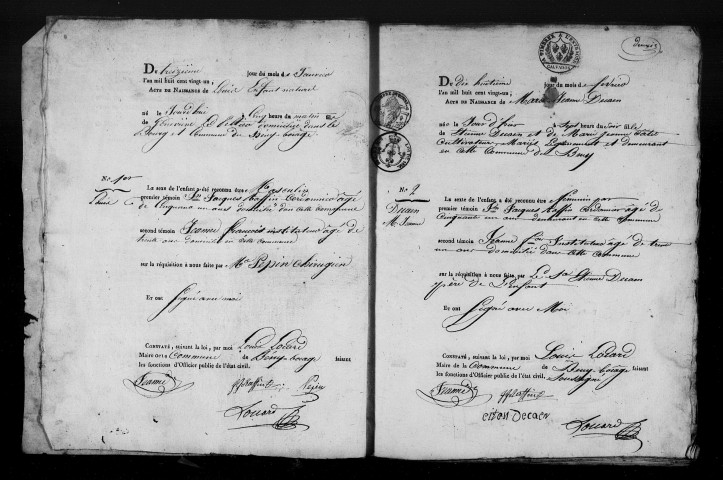 Du treizième jour du mois de Janvier
l'an mil huit cent vingt-un :
Acte de Naissance de Louis Enfant naturel
né le Jourdhui à Cinq heures du matin fils
de Geneviève domiciliée dans le
Bourg et Commune du Beny bocage
No. 1er
Louis
Le sexe de l'enfant a été reconnu être Masculin
premier témoin Sr Jacques Raffin Cordonnier âgé
de Cinquante un ans domicilié dans cette Commune
second témoin Jeanne françois instituteur âgé de
trente ans domicilié en cette Commune
sur la réquisition à nous faite par Mr Pépin Chirugien
Et ont signé avec moi
Constaté, suivant la loi, par moi Louis Lorard
Maire de la Commune du Bény-bocage faisant
les fonctions d'Officier public de l'état civil.
Jeanne JJRaffin Pépin
Louard
Du dix huitième jour du mois de février
l'an mil huit cent vingt-un ;
Acte de Naissance de Marie Jeanne Decaen
née le Jourd'hui à Sept heures du soir fille
de Etienne Decaen et de Marie
Cultivateurs Mariés Légitimement et demeurant
en cette Commune du Beny
No. 2
Decaen
M. Jeanne
Le sexe de l'enfant a été reconnu être féminin par
premier témoin Sr Jacques Raffin Cordonnier âgé de
Cinquante un ans demeurant en cette Commune
second témoin Jeanne fçois Instituteur âgé de trente
un ans domicilié dans cette Commune
sur la réquisition à nous faite par Le Sr Etienne Decaen
père de L'enfant
Et ont Signé avec Moi
Constaté, suivant la loi, par moi Louis Lorard
Maire de la Commune du Beny bocage faisant
les fonctions d'Officier public de l'état civil. Soussigné
Jeanne JJRaffin
etien Decaen
Louard